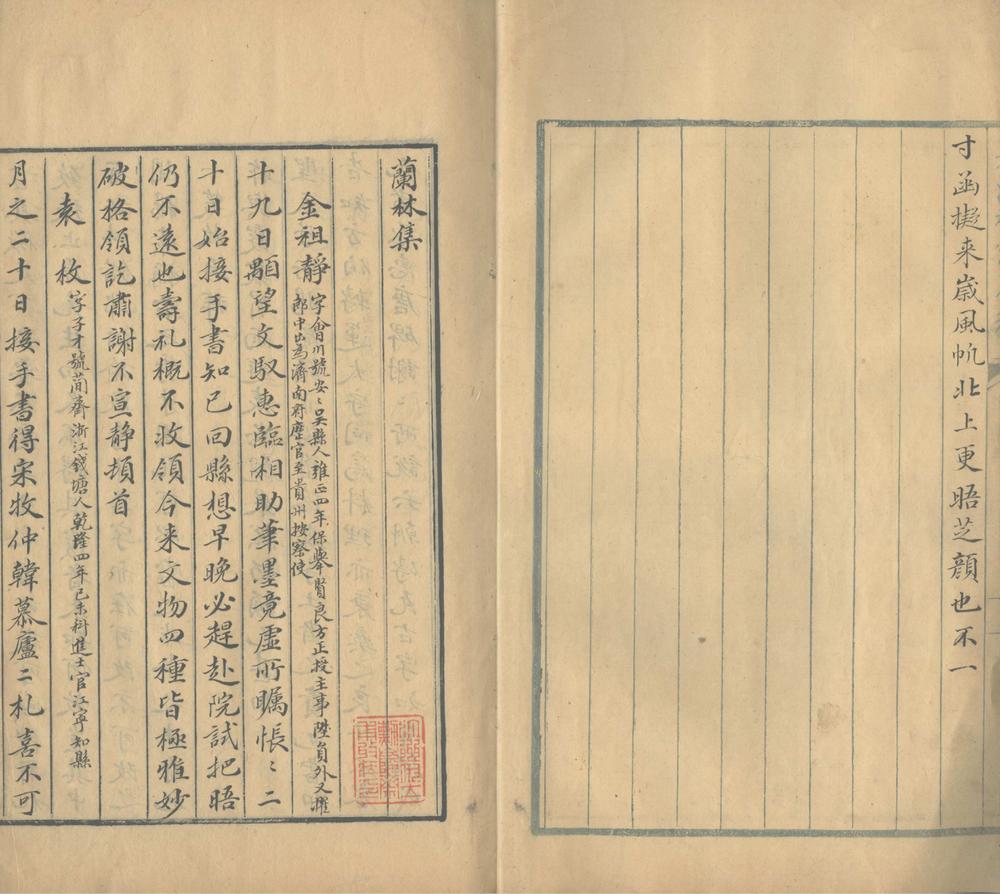 寸函擬来嵗風帆北上更晤芝顔也不一
蘭林集
金祖靜
字會川號安〻吳縣人雍正四年保舉賢良方正授主事陞員外又陞
郎中出為濟南府歷官至貴州按察使
十九日顒望文馭惠臨相助筆墨竟虛所矚悵〻二
十日始接手書知已回縣想早晚必趕赴院試把晤
仍不遠也壽礼概不收領今来文物四種皆極雅妙
破格領訖肅謝不宣静頓首
袁枚字子才號蕳齋浙江錢塘人乾隆四年己未科進士官江寧知縣
月之二十日接手書得宋牧仲韓慕廬二札喜不可